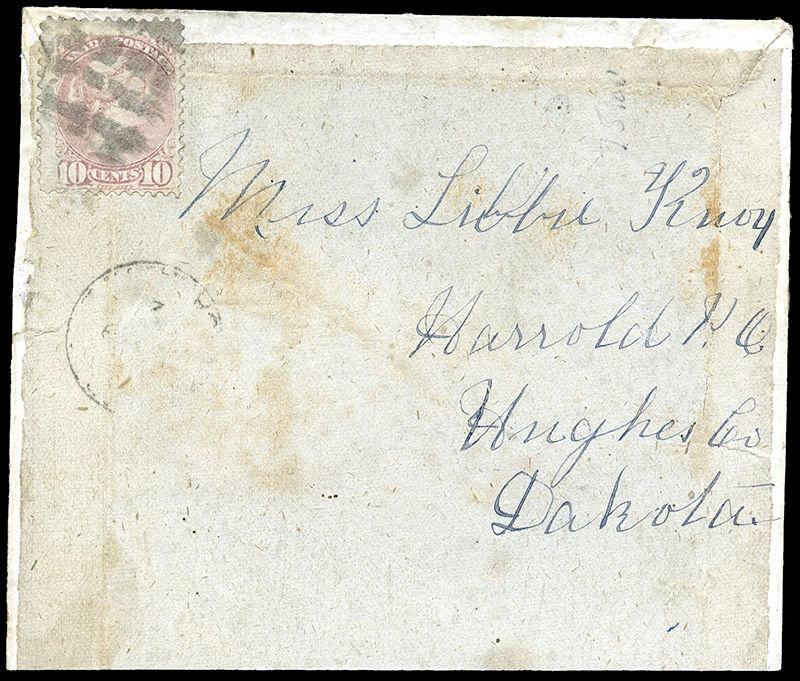 POSTAGE
10 CENTS 10
Miss Libbie Knox
Harrold P. O
Hughes Co
Dakota